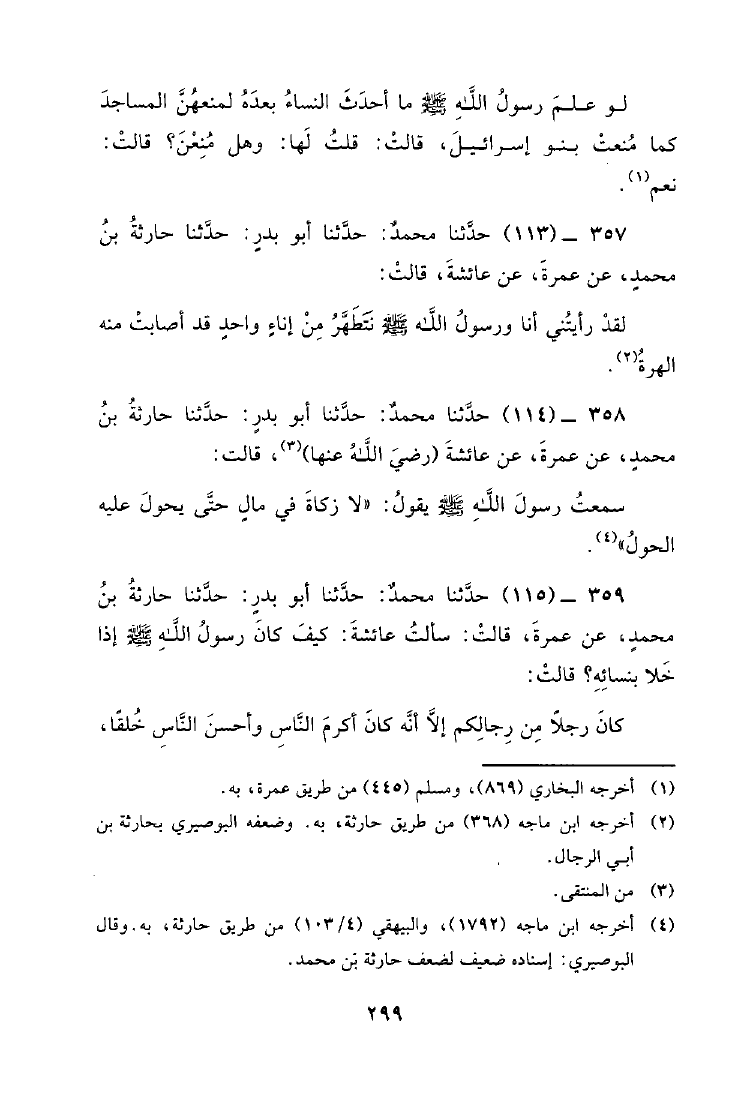 لو علمَ رسولُ اللَّهِ ﷺ ما أحدَثَ النساءُ بعدَهُ لمنعهُنَّ المساجدَ
كما مُنعتْ بنو إسرائيلَ، قالتْ: قلتُ لَها: وهل مُنِعْنَ؟ قالتْ:
نعم(١).
٣٥٧ ــ (١١٣) حدَّثنا محمدٌ: حدَّثنا أبو بدرٍ: حدَّثنا حارثةُ بنُ
محمدٍ، عن عمرةَ، عن عائشةَ، قالتْ:
لقدْ رأيتُني أنا ورسولُ اللَّه ﷺ نَتَطَهَّرُ مِنْ إناءٍ واحدٍ قد أصابتْ منه
الهرةُ(٢).
٣٥٨ ــ (١١٤) حدَّثنا محمدٌ: حدَّثنا أبو بدرٍ: حدَّثنا حارثةُ بنُ
محمدٍ، عن عمرةَ، عن عائشةَ (رضيَ اللَّهُ عنها)(٣)، قالت:
سمعتُ رسولَ اللَّهِ ﷺ يقولُ: «لا زكاةَ في مالٍ حتَّى يحولَ عليه
الحولُ»(٤).
٣٥٩ ــ (١١٥) حدَّثنا محمدٌ: حدَّثنا أبو بدرٍ: حدَّثنا حارثةُ بنُ
محمدٍ، عن عمرةَ، قالتْ: سألتُ عائشةَ: كيفَ كانَ رسولُ اللَّهِ ﷺ إذا
خَلا بنسائِهِ؟ قالتْ:
كانَ رجلاً مِن رِجالِكم إلاَّ أنَّه كانَ أكرمَ النَّاسِ وأحسنَ النَّاسِ خُلقًا،
(١) أخرجه البخاري (٨٦٩)، ومسلم (٤٤٥) من طريق عمرة، به.
(٢) أخرجه ابن ماجه (٣٦٨) من طريق حارثة، به. وضعفه البوصيري بحارثة بن
أبي الرجال.
(٣) من المنتقى.
(٤) أخرجه ابن ماجه (١٧٩٢)، والبيهقي (٤/ ١٠٣) من طريق حارثة، به. وقال
البوصيري: إسناده ضعيف لضعف حارثة بن محمد.
٢٩٩